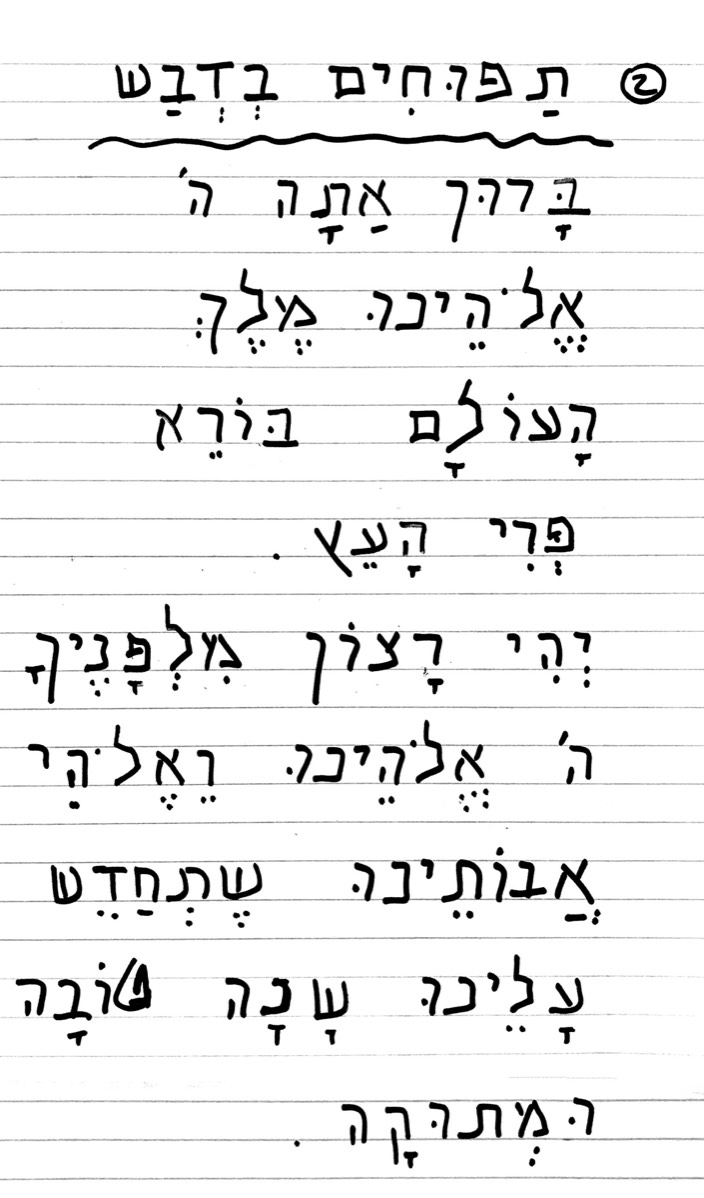 ② תַפּוּחִים בְּדְבַּשׁ
בָּרוּךְ אַתָה ה'
אֱלֹהֵינוּ מֶלֶךְ
הָעוֹלָם בּוֹרֵא
פְּרִי הָעֵץ .
יְהִי רָצוֹן מִלְפָּנֶיךָ
ה' אֱלֹהֵינוּ וֵאֱלֹהֵי
אֲבוֹתֵינוּ שֶתְחַדֵש
עָלֵינוּ שָנָה טוֹבָה
וּמְתוּקָה .